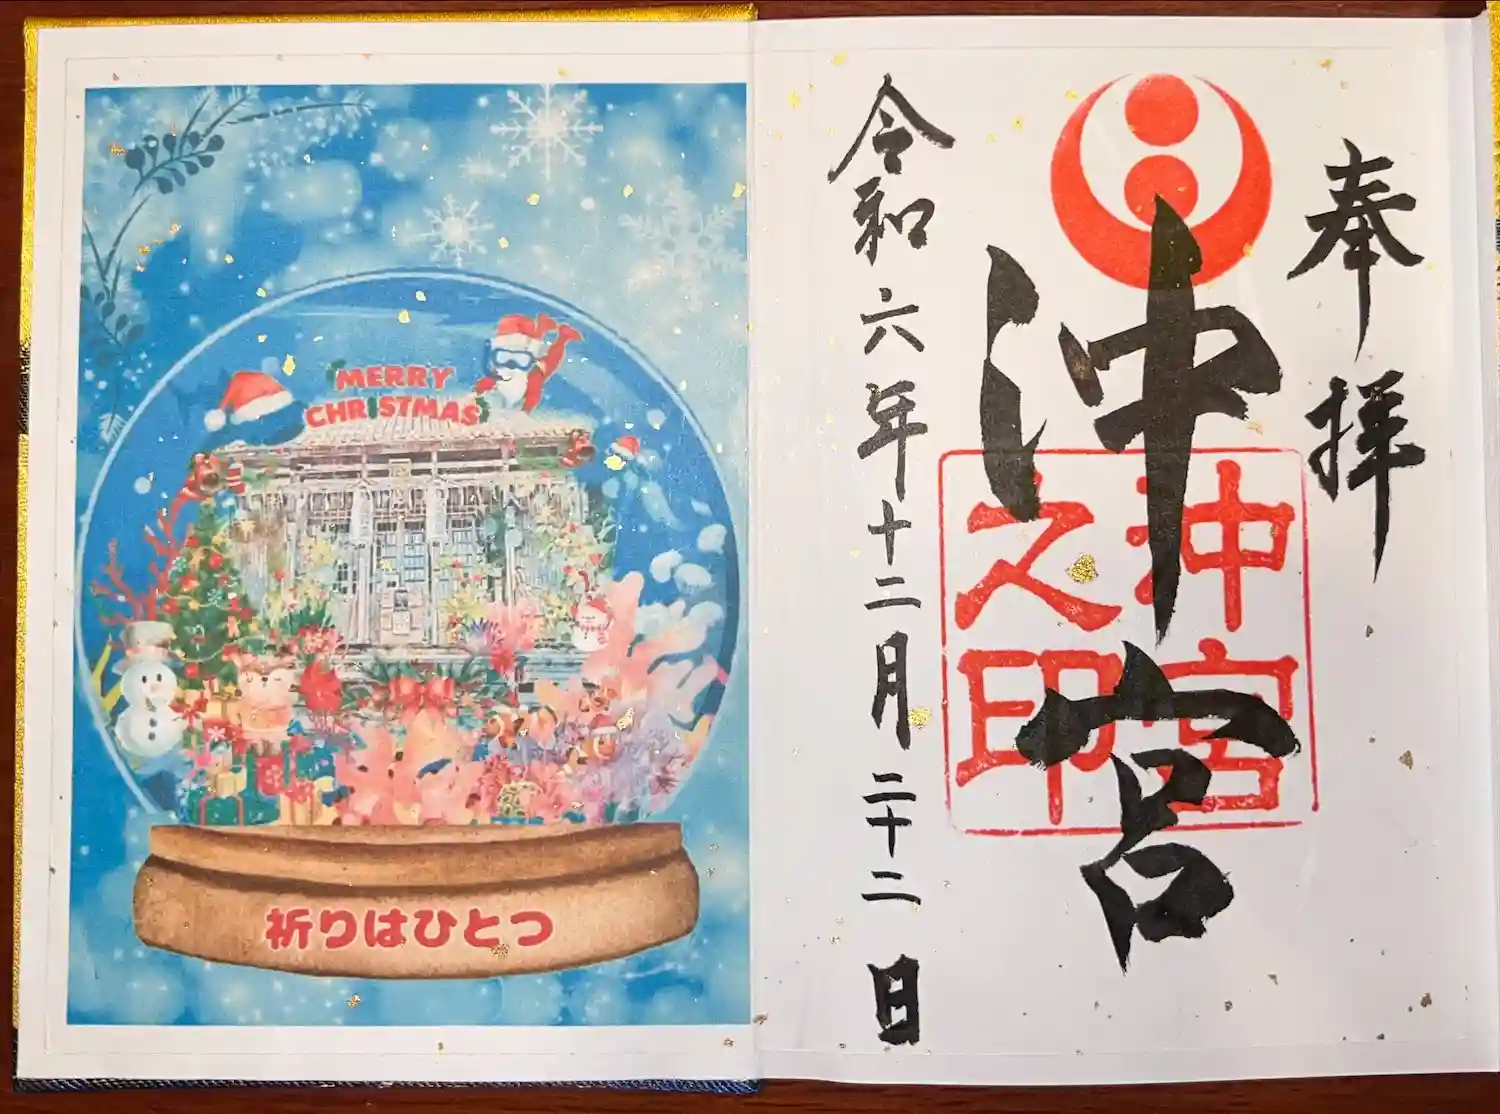 MERRY
CHRISTMAS
祈りはひとつ
奉拝
沖宮
沖宮
之印
令和六年十二月二十二日